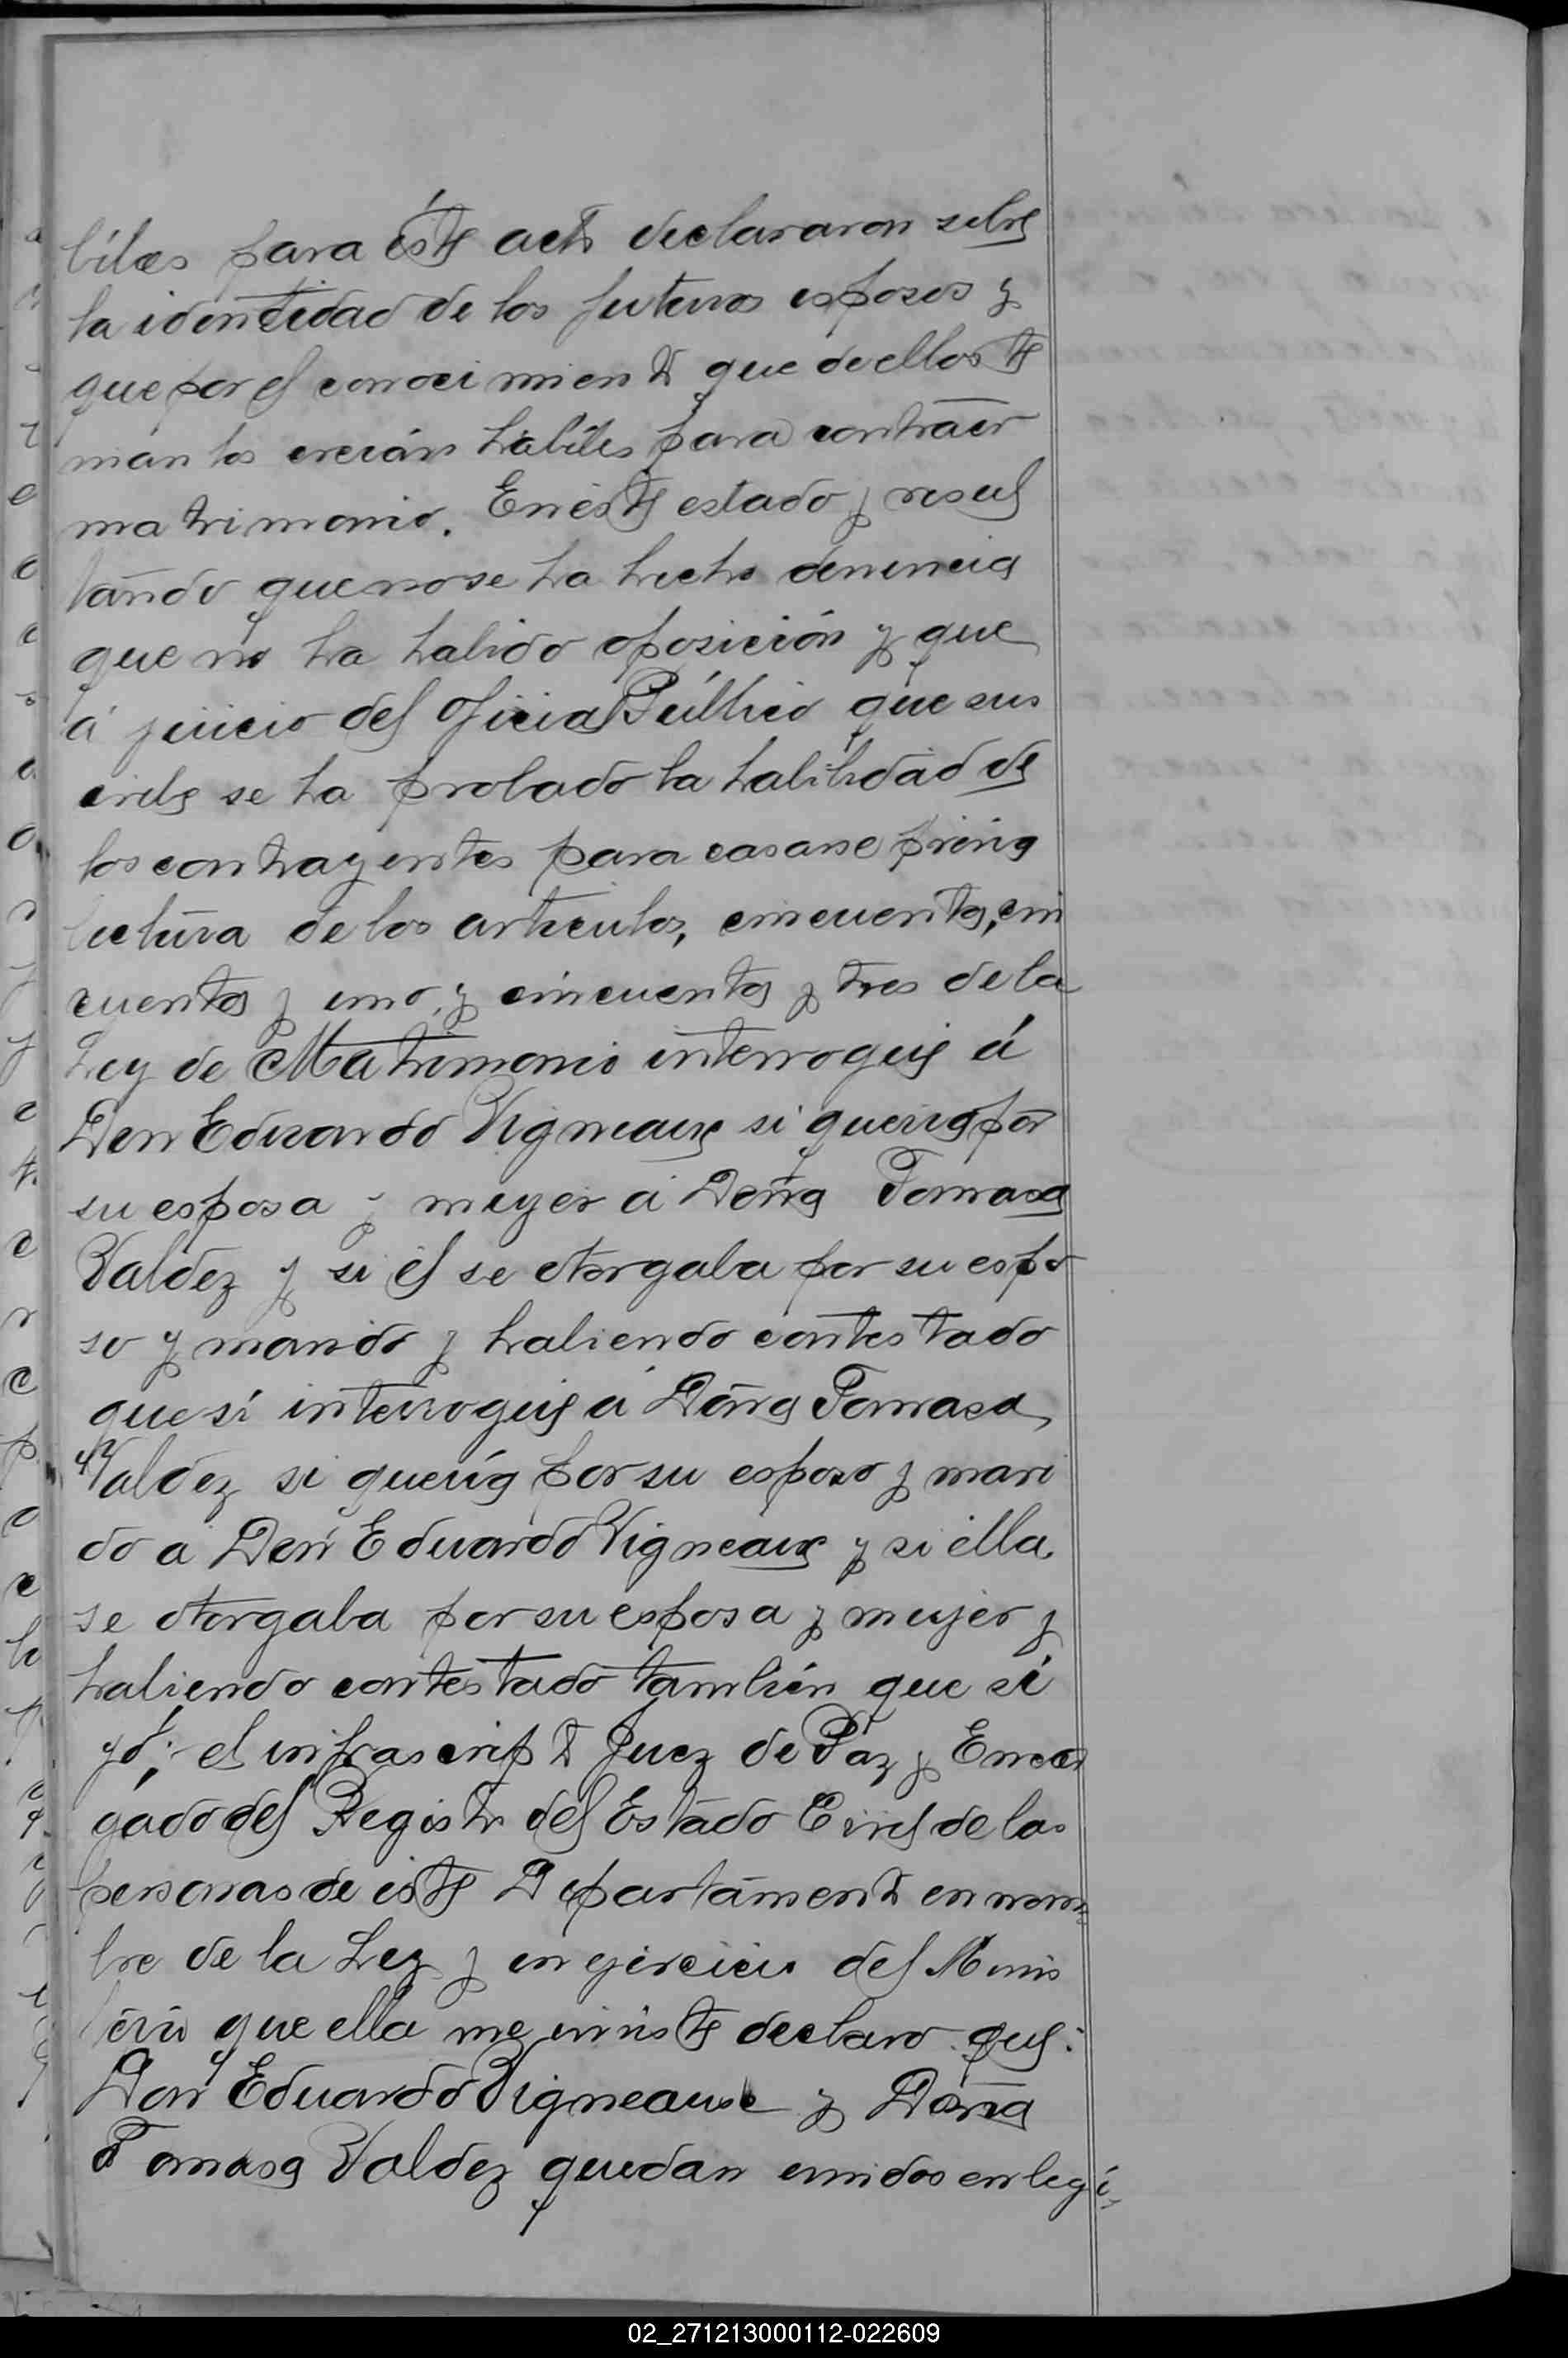 biles para éste acto declararon sobre
la identidad de los futuros esposos y
que por el conocimiento que de ellos te
nian los creian hábiles para contraer
matrimonio. En éste estado y resul
tando que no se ha hecho denuncia
que no ha habido oposición y que
á juicio del Oficial Público que sus
cribe se ha probado la habilidad de
los contrayentes para casarse prévia
lectura de los articulos, cincuenta, cin
cuenta y uno, y cincuenta y tres de la
Ley de Matrimonio interrogué á
Don Eduardo Vigneaux si queria por
su esposa y mujer á Doña Tomasa
Valdez y si él se otorgaba por su espo
so y marido y habiendo contestado
que sí interrogué á Doña Tomasa
Valdez si quería por su esposo y mari
do á Don Eduardo Vigneaux y si ella
se otorgaba por su esposa y mujer y
habiendo contestado también que sí
yó; el infrascripto Juez de Paz y Encar
gado del Registro del Estado Civil de las
personas de éste Departamento en nom
bre de la Ley y en ejercicio del Minis
terio que ella me inviste declaro que:
Don Eduardo Vigneaux y Doña
Tomasa Valdez quedan unidos en legí
02_271213000112-022609